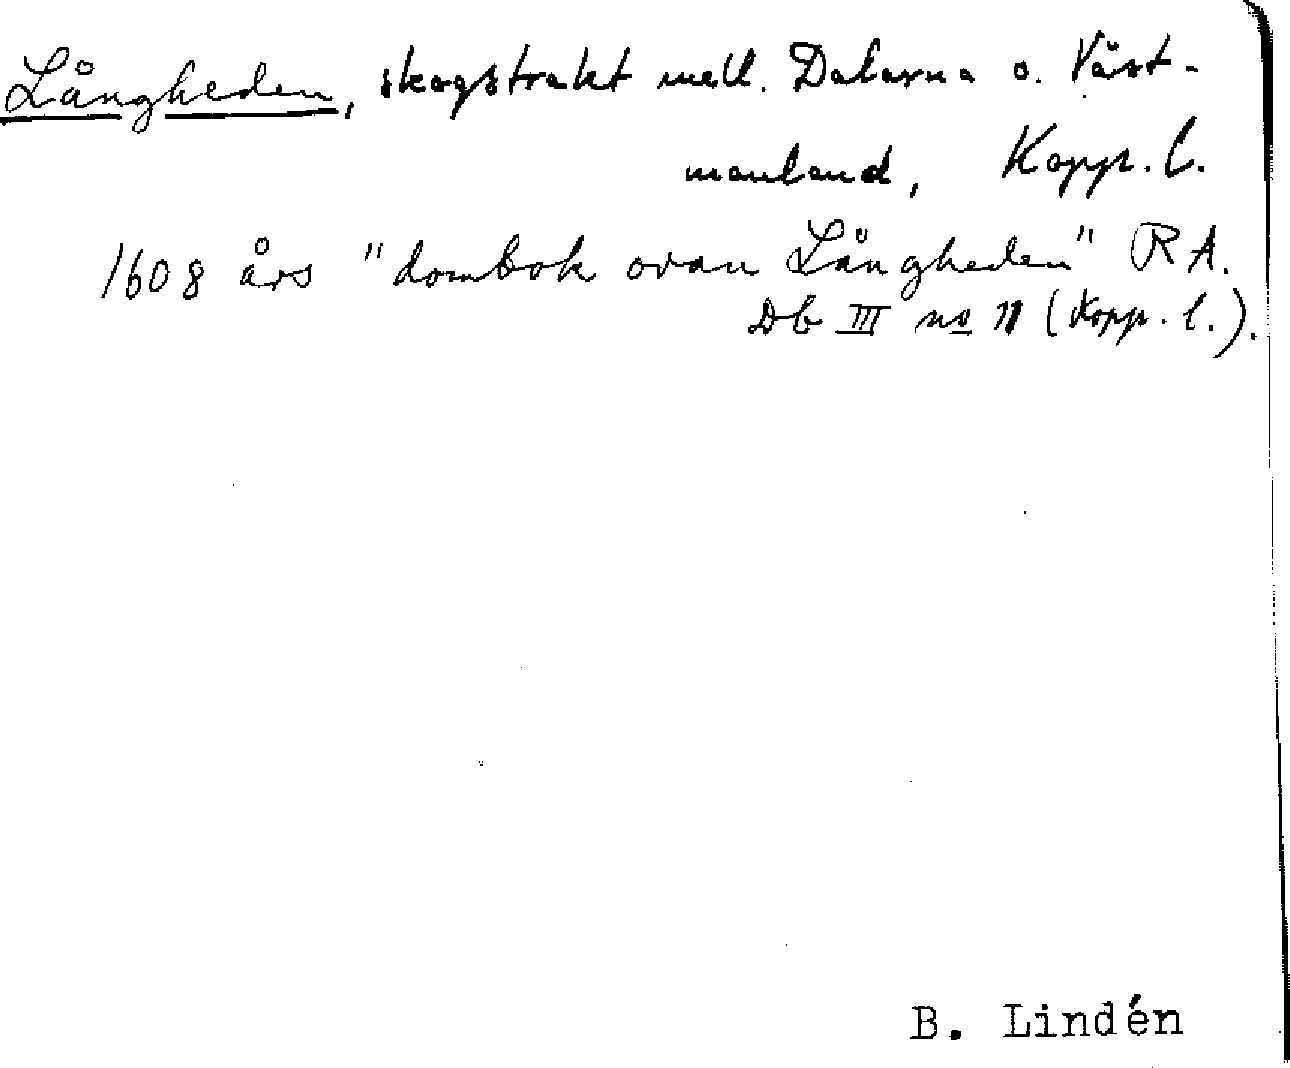 Långheden, skogstrakt mell. Dalarna o. Väst-
manland, Kopp. l.
1608 års "dombok ovan Långheden" RA.
Db III no 11 (Kopp. l.).
B. Lindén